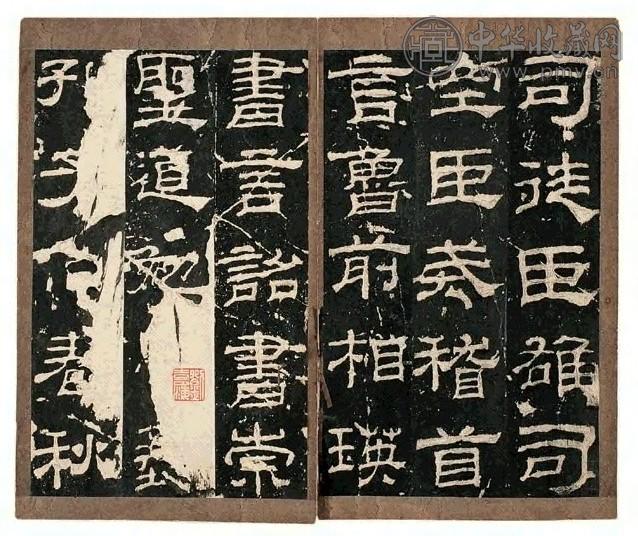 中华收藏网
司徒臣雄司
空臣戒稽首
言魯前相瑛
書言詔書崇
聖道勉
孔子作春秋